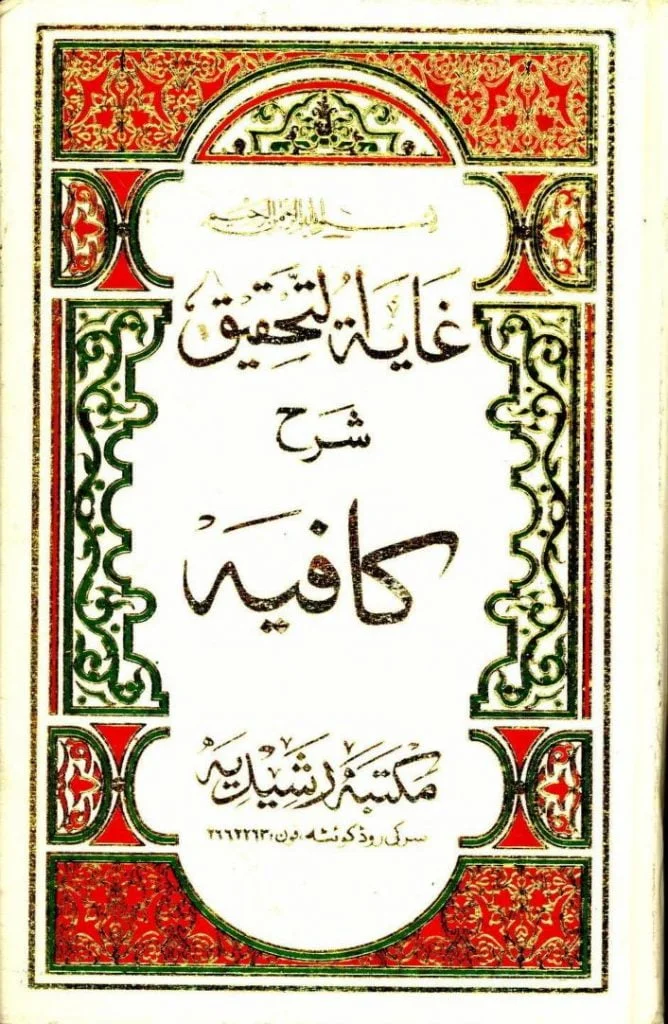 بسم الله الرحمن الرحيم
غَايَةُ التَّحْقِيق
شَرح
كافيه
مكتبه رشيديه
سرکی روڈ کوئٹہ، فون: ۲۶۶۲۲۶۳